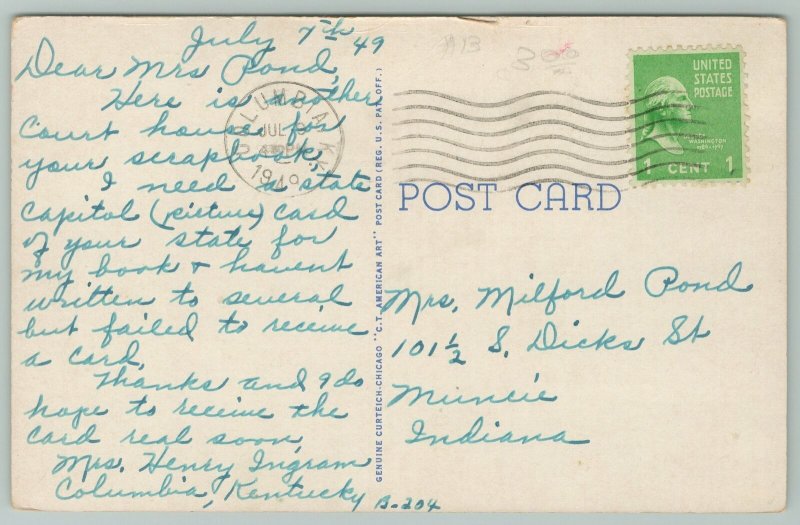 July 7th 49
Dear Mrs Pond,
Here is another
court house for
your scrapbook,
I need a state
capitol (picture) card
of your state for
my book & havent
written to several
but failed to receive
a card,
Thanks and I do
hope to receive the
card real soon,
Mrs. Henry Ingram
Columbia, Kentucky
B-204
GENUINE CURTEICH-CHICAGO "C.T. AMERICAN ART" POST CARD (REG. U.S. PAT. OFF.)
COLUMBIA, KY.
JUL
1949
UNITED
STATES
POSTAGE
WASHINGTON
1 CENT 1
POST CARD
Mrs. Milford Pond
101 1/2 S. Dicks St
Muncie
Indiana